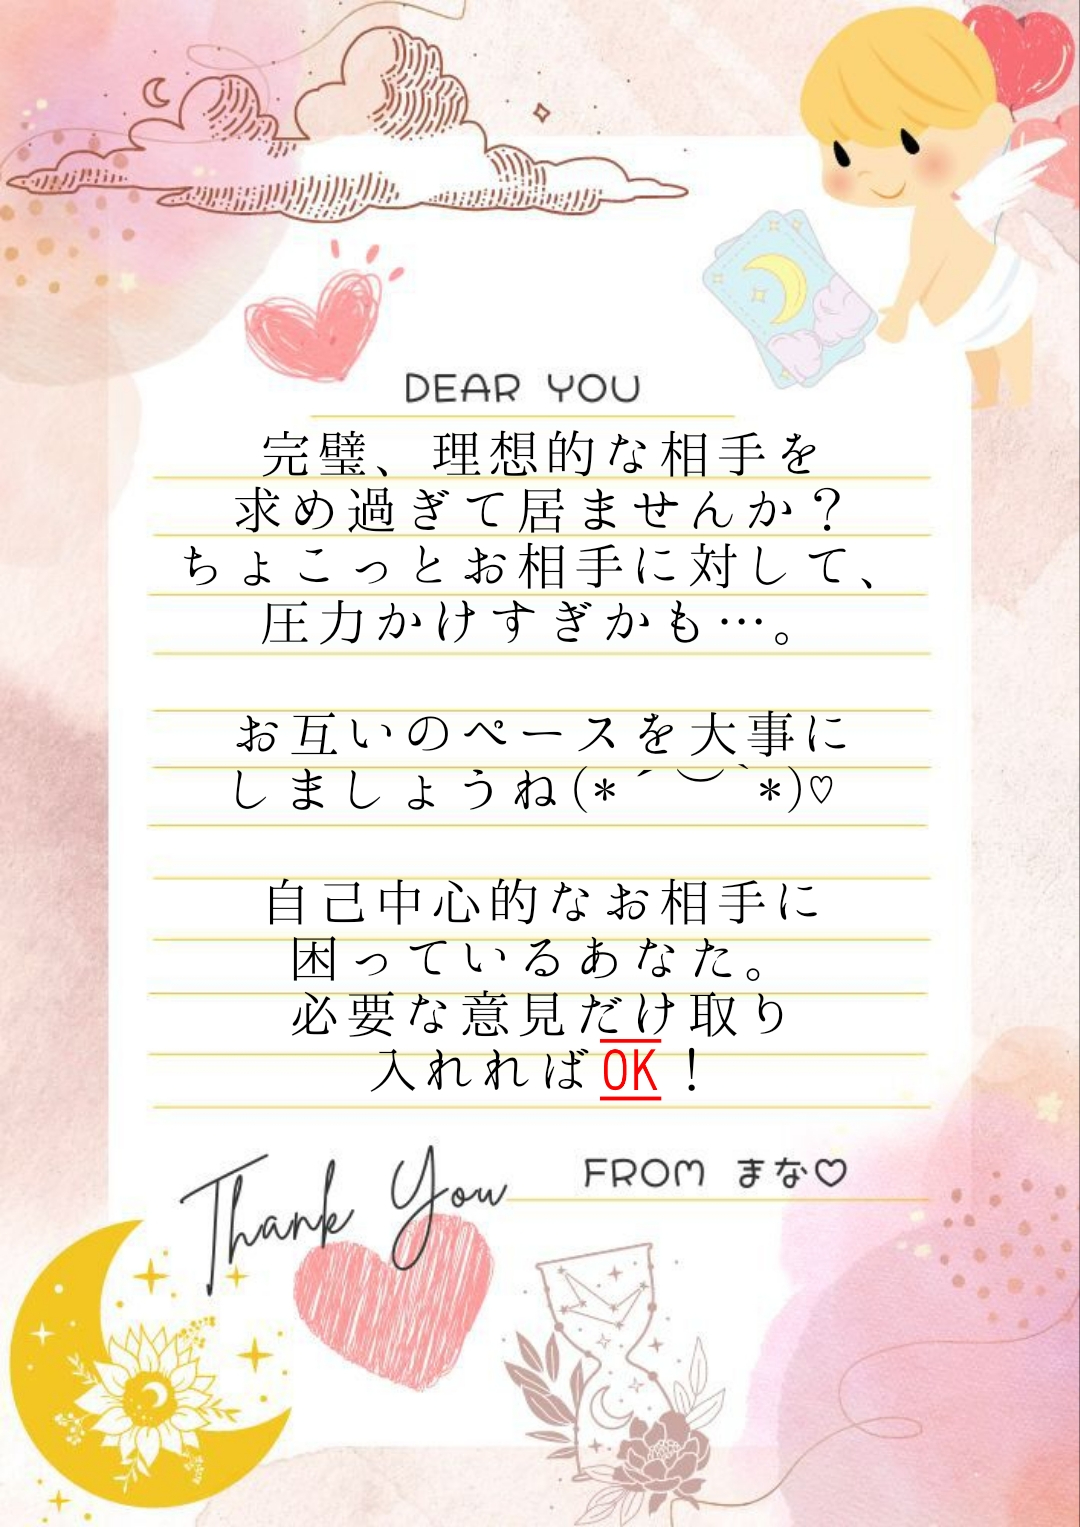 DEAR YOU
完璧、理想的な相手を
求め過ぎて居ませんか？
ちょこっとお相手に対して、
圧力かけすぎかも…。
お互いのペースを大事に
しましょうね(*´︶`*)♡
自己中心的なお相手に
困っているあなた。
必要な意見だけ取り
入れればOK！
FROM まな♡
Thank You